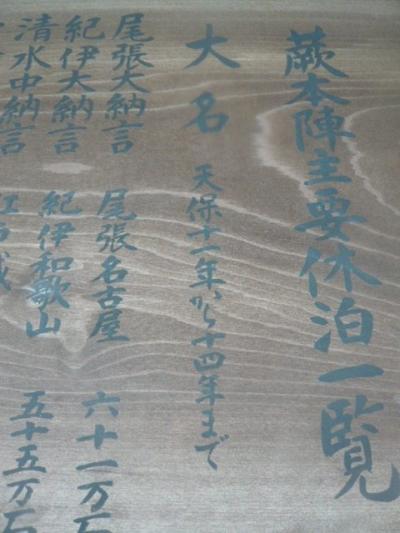 蕨本陣主要休泊一覧
大名 天保十一年から十四年まで
尾張大納言 尾張名古屋 六十一万石
紀伊大納言 紀伊和歌山 五十五万石
清水中納言 江戸城